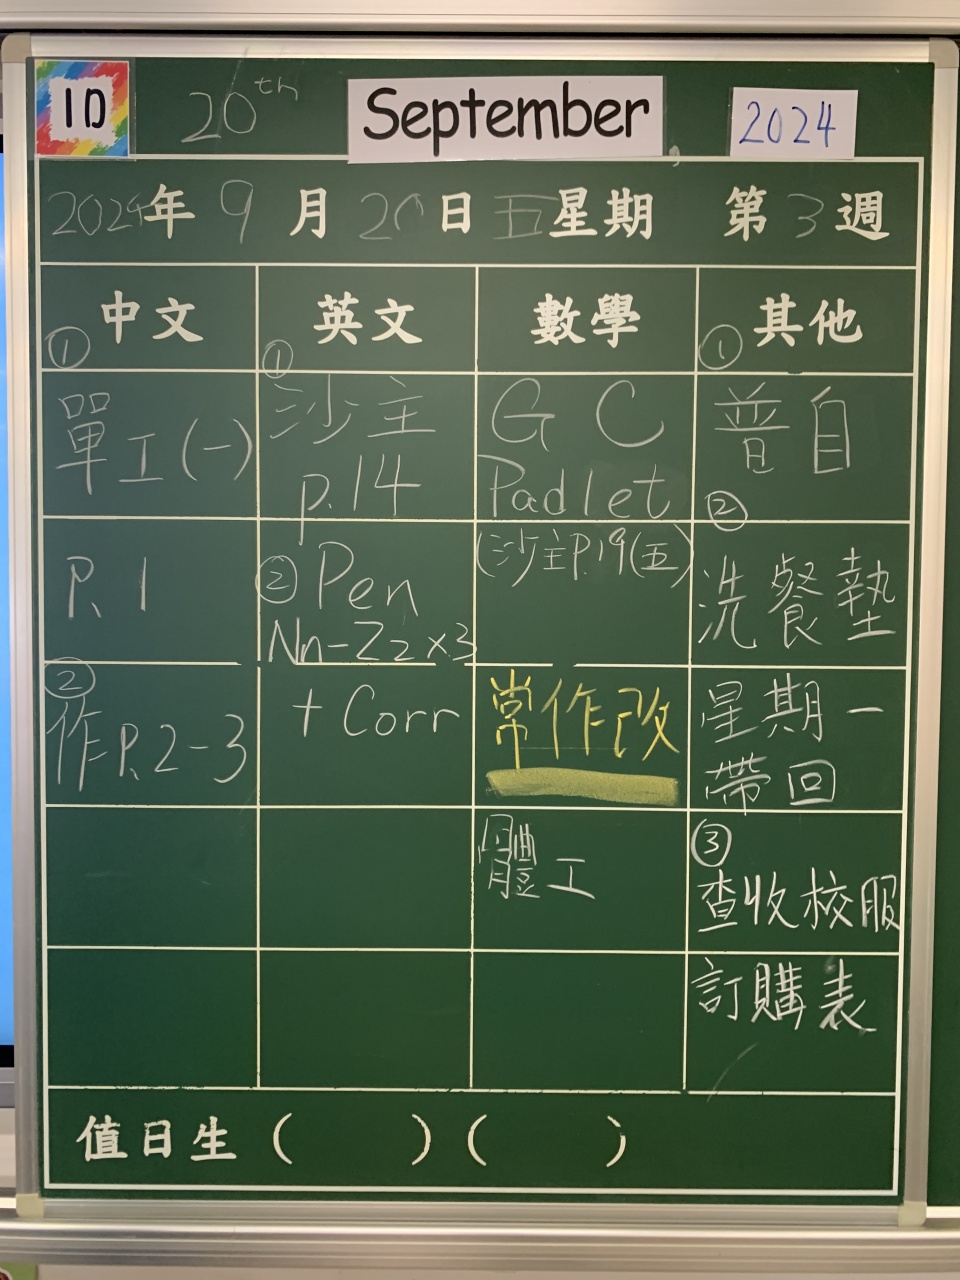 1D 20th September, 2024
2024年 9 月 20 日 五星期 第 3 週
中文 英文 數學 其他
①
單工(一)
P.1
②
作P.2-3
①
沙主
p.14
② Pen
Nn-Zz x3
+ Corr
G C
Padlet
(沙主P.19(五)
常作改
體工
①
普自
②
洗餐墊
星期一
帶回
③
查收校服
訂購表
值日生 ( ) ( )